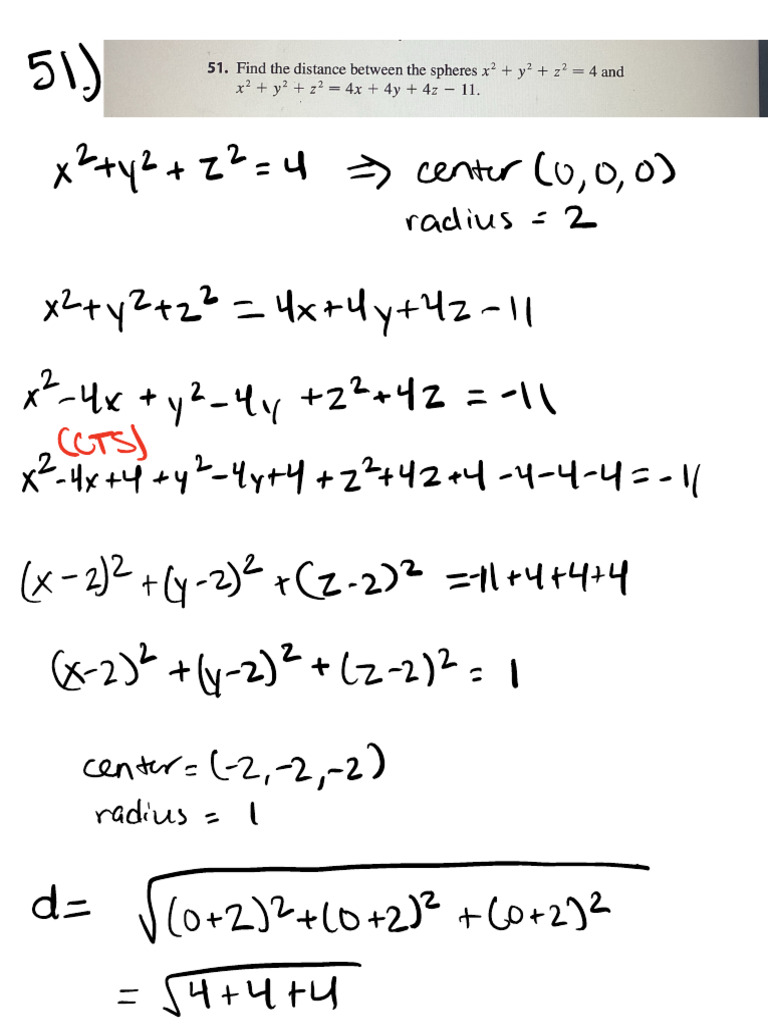 51.)
51. Find the distance between the spheres x² + y² + z² = 4 and
x² + y² + z² = 4x + 4y + 4z − 11.
x²+y²+z²=4 ⇒ center (0,0,0)
radius = 2
x²+y²+z² = 4x+4y+4z-11
x²-4x + y²-4y +z²+4z = -11
(CTS)
x²-4x+4+y²-4y+4+z²+4z+4-4-4-4=-11
(x-2)²+(y-2)²+(z-2)² =-11+4+4+4
(x-2)²+(y-2)²+(z-2)²=1
center=(-2,-2,-2)
radius = 1
d= √(0+2)²+(0+2)²+(0+2)²
= √4+4+4